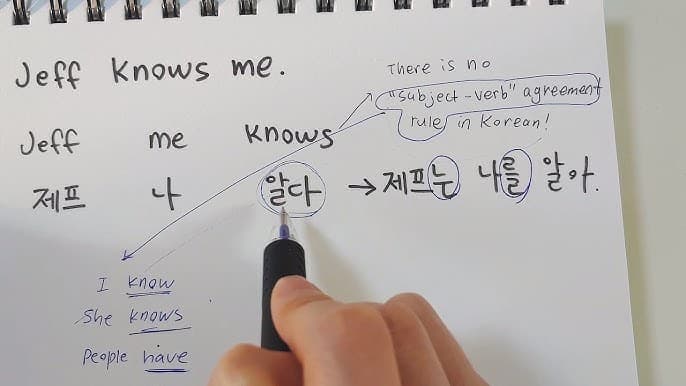 Jeff knows me.
There is no
"subject-verb" agreement
rule in Korean!
Jeff me knows
제프 나 알다 → 제프는 나를 알아.
I know
She knows
people have